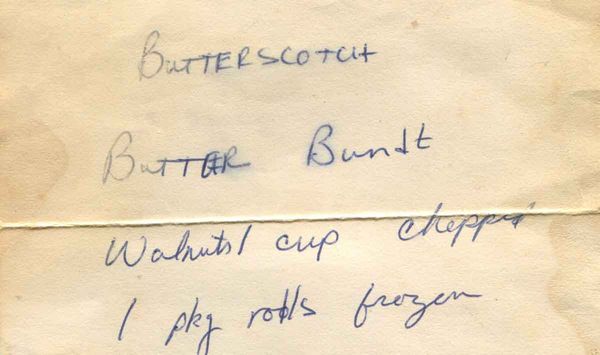 BUTTERSCOTCH
BUTTER Bundt
Walnuts 1 cup chopped
1 pkg rolls frozen